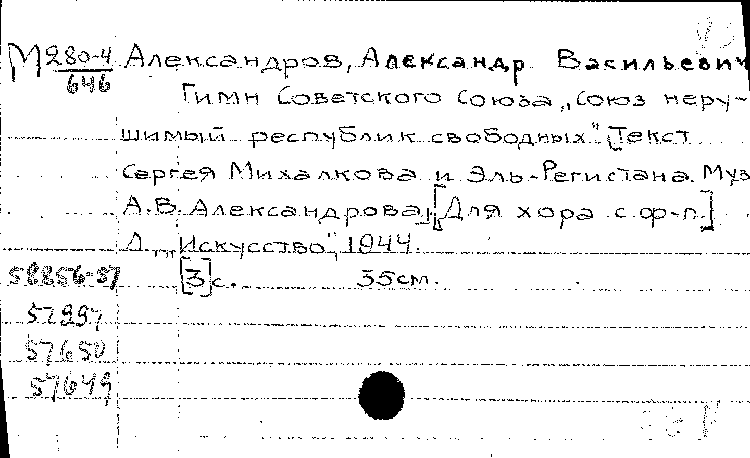 М 280-4 Александров, Александр Васильевич
646
Гимн Советского Союза „Союз неру-
шимый республик свободных". [Текст
Сергея Михалкова и Эль-Регистана. Муз
А.В. Александрова]. [Для хора с ф-п.]
Л., „Искусство", 1944.
58856-57 [3]с. 35см.
57297
57650
57649